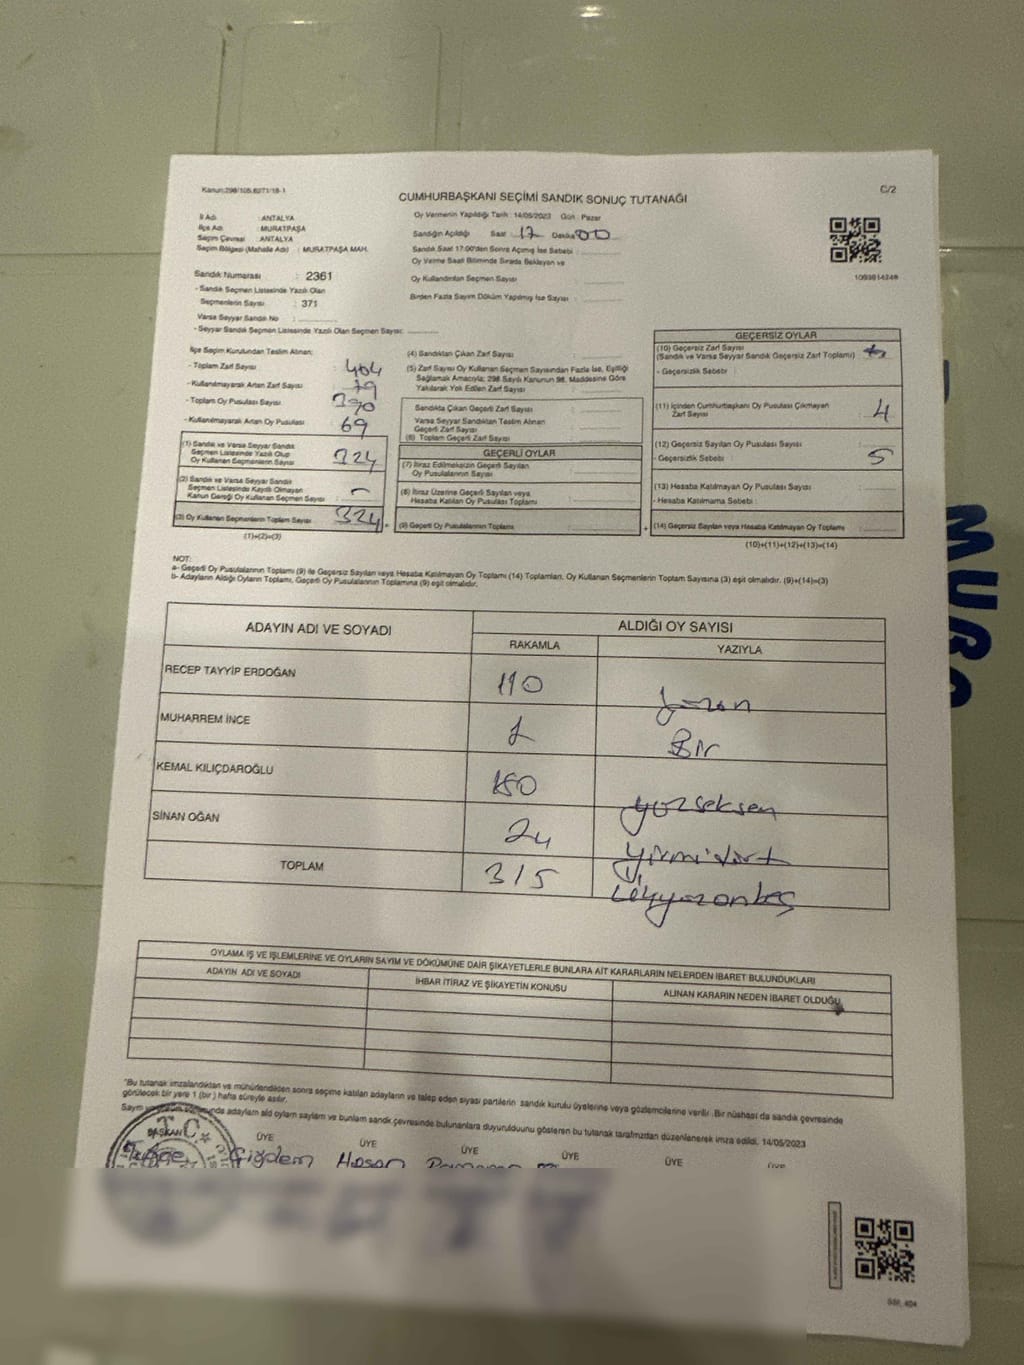 Kanun:298/105,6271/18-1
C/2
CUMHURBAŞKANI SEÇİMİ SANDIK SONUÇ TUTANAĞI
İl Adı : ANTALYA
İlçe Adı : MURATPAŞA
Seçim Çevresi : ANTALYA
Seçim Bölgesi (Mahalle Adı) : MURATPAŞA MAH.
Oy Vermenin Yapıldığı Tarih : 14/05/2023 Gün : Pazar
Sandığın Açıldığı Saat 17 Dakika 00
Sandık Saat 17:00'den Sonra Açılmış İse Sebebi :
Oy Verme Saati Bitiminde Sırada Bekleyen ve
Oy Kullandırılan Seçmen Sayısı :
Birden Fazla Sayım Döküm Yapılmış İse Sayısı :
1093614248
Sandık Numarası : 2361
- Sandık Seçmen Listesinde Yazılı Olan
Seçmenlerin Sayısı : 371
Varsa Seyyar Sandık No :
- Seyyar Sandık Seçmen Listesinde Yazılı Olan Seçmen Sayısı:
İlçe Seçim Kurulundan Teslim Alınan;
- Toplam Zarf Sayısı : 404
- Kullanılmayarak Artan Zarf Sayısı : 79
- Toplam Oy Pusulası Sayısı : 390
- Kullanılmayarak Artan Oy Pusulası : 69
(1) Sandık ve Varsa Seyyar Sandık
Seçmen Listesinde Yazılı Olup
Oy Kullanan Seçmenlerin Sayısı : 324
(2) Sandık ve Varsa Seyyar Sandık
Seçmen Listesinde Kayıtlı Olmayan
Kanun Gereği Oy Kullanan Seçmen Sayısı : -
(3) Oy Kullanan Seçmenlerin Toplam Sayısı : 324
(1)+(2)=(3)
(4) Sandıktan Çıkan Zarf Sayısı :
(5) Zarf Sayısı Oy Kullanan Seçmen Sayısından Fazla İse, Eşitliği
Sağlamak Amacıyla; 298 Sayılı Kanunun 98. Maddesine Göre
Yakılarak Yok Edilen Zarf Sayısı :
Sandıkta Çıkan Geçerli Zarf Sayısı :
Varsa Seyyar Sandıktan Teslim Alınan
Geçerli Zarf Sayısı :
(6) Toplam Geçerli Zarf Sayısı :
GEÇERLİ OYLAR
(7) İtiraz Edilmeksizin Geçerli Sayılan
Oy Pusulalarının Sayısı :
(8) İtiraz Üzerine Geçerli Sayılan veya
Hesaba Katılan Oy Pusulası Toplamı :
(9) Geçerli Oy Pusulalarının Toplamı :
GEÇERSİZ OYLAR
(10) Geçersiz Zarf Sayısı
(Sandık ve Varsa Seyyar Sandık Geçersiz Zarf Toplamı) :
- Geçersizlik Sebebi :
(11) İçinden Cumhurbaşkanı Oy Pusulası Çıkmayan
Zarf Sayısı : 4
(12) Geçersiz Sayılan Oy Pusulası Sayısı : 5
- Geçersizlik Sebebi :
(13) Hesaba Katılmayan Oy Pusulası Sayısı :
- Hesaba Katılmama Sebebi :
(14) Geçersiz Sayılan veya Hesaba Katılmayan Oy Toplamı :
(10)+(11)+(12)+(13)=(14)
NOT:
a- Geçerli Oy Pusulalarının Toplamı (9) ile Geçersiz Sayılan veya Hesaba Katılmayan Oy Toplamı (14) Toplamları, Oy Kullanan Seçmenlerin Toplam Sayısına (3) eşit olmalıdır. (9)+(14)=(3)
b- Adayların Aldığı Oyların Toplamı, Geçerli Oy Pusulalarının Toplamına (9) eşit olmalıdır.
ADAYIN ADI VE SOYADI
ALDIĞI OY SAYISI
RAKAMLA YAZIYLA
RECEP TAYYİP ERDOĞAN 110 yüzon
MUHARREM İNCE 1 Bir
KEMAL KILIÇDAROĞLU 180 yüzseksen
SİNAN OĞAN 24 yirmidört
TOPLAM 315 üçyüzonbeş
OYLAMA İŞ VE İŞLEMLERİNE VE OYLARIN SAYIM VE DÖKÜMÜNE DAİR ŞİKAYETLERLE BUNLARA AİT KARARLARIN NELERDEN İBARET BULUNDUKLARI
ADAYIN ADI VE SOYADI İHBAR İTİRAZ VE ŞİKAYETİN KONUSU ALINAN KARARIN NEDEN İBARET OLDUĞU
"Bu tutanak imzalandıktan ve mühürlendikten sonra seçime katılan adayların ve talep eden siyasi partilerin sandık kurulu üyelerine veya gözlemcilerine verilir. Bir nüshası da sandık çevresinde
görülecek bir yere 1 (bir) hafta süreyle asılır.
Sayım ve sonunda adayların ald oyların sayıları ve bunların sandık çevresinde bulunanlara duyurulduğunu gösteren bu tutanak tarafımızdan düzenlenerek imza edildi. 14/05/2023
T.C.
BAŞKAN ÜYE ÜYE ÜYE ÜYE ÜYE ÜYE
Tuğçe Çiğdem Hasan Ramazan
MURO
SSF, 404